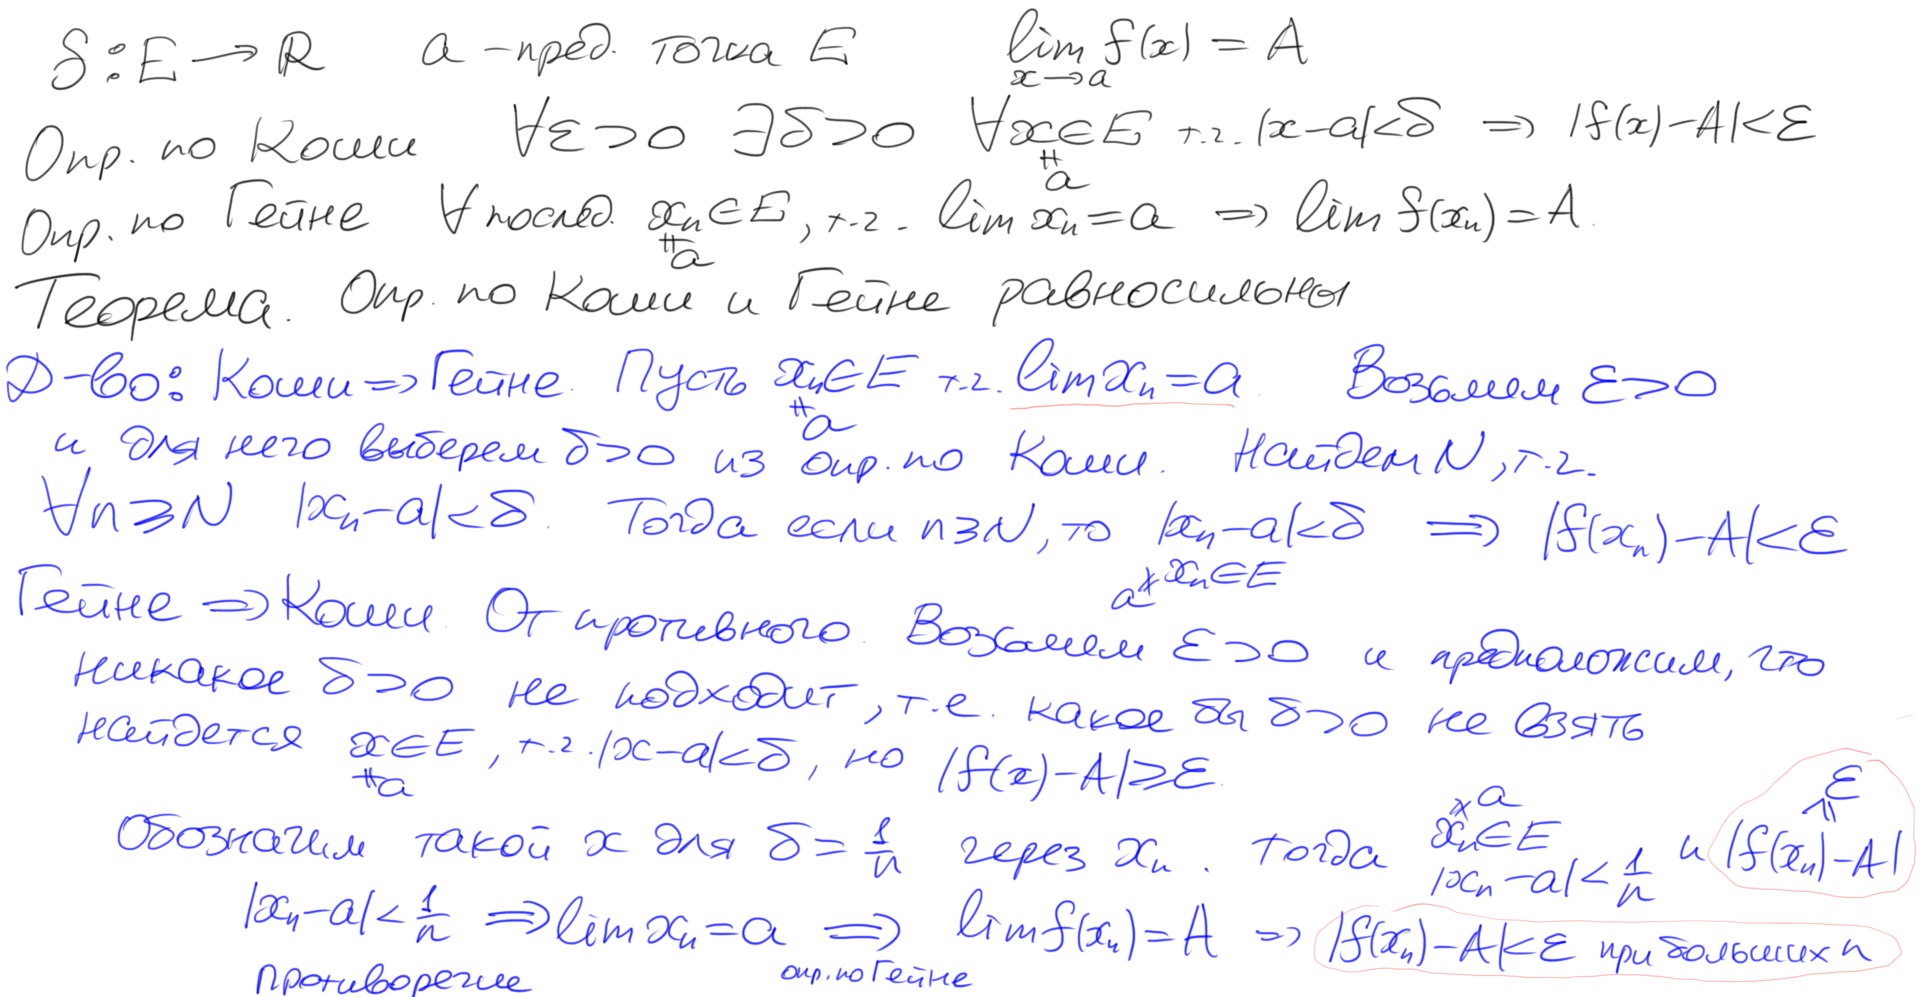 f : E → R a - пред. точка E lim f(x) = A
x→a
Опр. по Коши ∀ε>0 ∃δ>0 ∀x∈E т.ч. |x-a|<δ ⇒ |f(x)-A|<ε
≠
a
Опр. по Гейне ∀ послед. xₙ∈E, т.ч. lim xₙ = a ⇒ lim f(xₙ) = A.
≠
a
Теорема. Опр. по Коши и Гейне равносильны
Д-во: Коши ⇒ Гейне. Пусть xₙ∈E т.ч. lim xₙ = a. Возьмем ε>0
≠
a
и для него выберем δ>0 из опр. по Коши. Найдем N, т.ч.
∀n≥N |xₙ-a|<δ. Тогда если n≥N, то |xₙ-a|<δ ⇒ |f(xₙ)-A|<ε
a ≠ xₙ∈E
Гейне ⇒ Коши. От противного. Возьмем ε>0 и предположим, что
никакое δ>0 не подходит, т.е. какое бы δ>0 не взять
найдется x∈E, т.ч. |x-a|<δ, но |f(x)-A|≥ε.
≠
a
Обозначим такой x для δ = 1/n через xₙ. Тогда a ≠ xₙ∈E |xₙ-a|<1/n и ε ≤ |f(xₙ)-A|
|xₙ-a|<1/n ⇒ lim xₙ = a ⇒ lim f(xₙ) = A ⇒ |f(xₙ)-A|<ε при больших n
противоречие опр. по Гейне